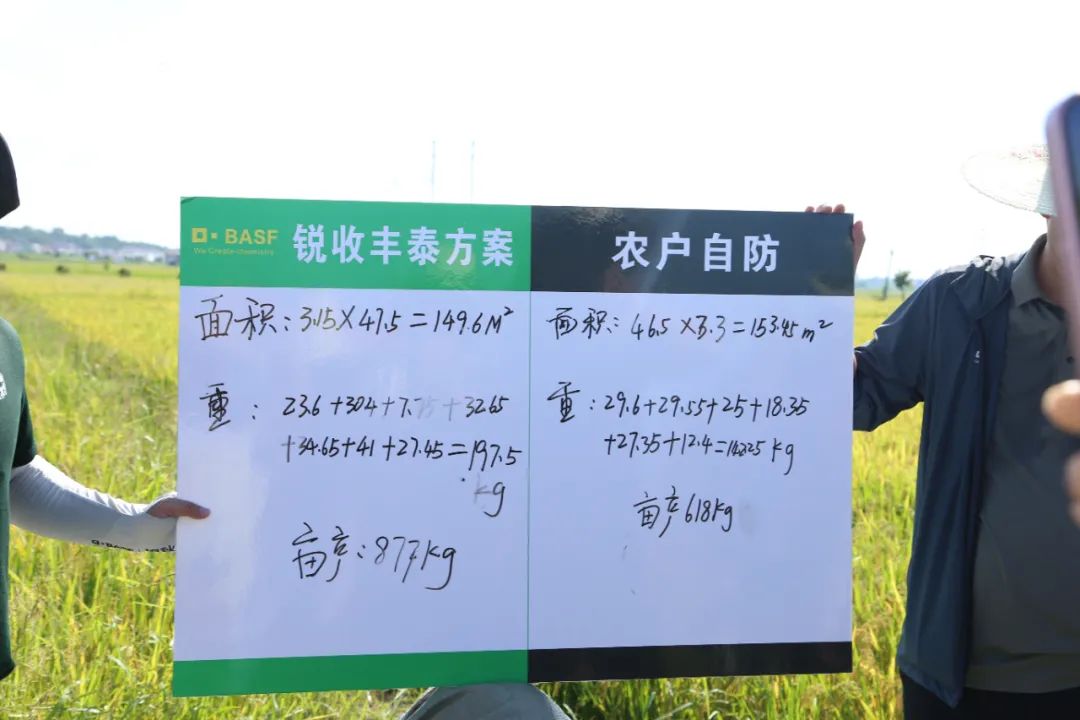 BASF
We create chemistry
锐收丰泰方案
面积:3.15×47.5=149.6M²
重: 23.6+304+7.75+32.65
+34.65+41+27.45=197.5
kg
亩产:877kg
农户自防
面积:46.5×3.3=153.45m²
重:29.6+29.55+25+18.35
+27.35+12.4=142.25kg
亩产618kg